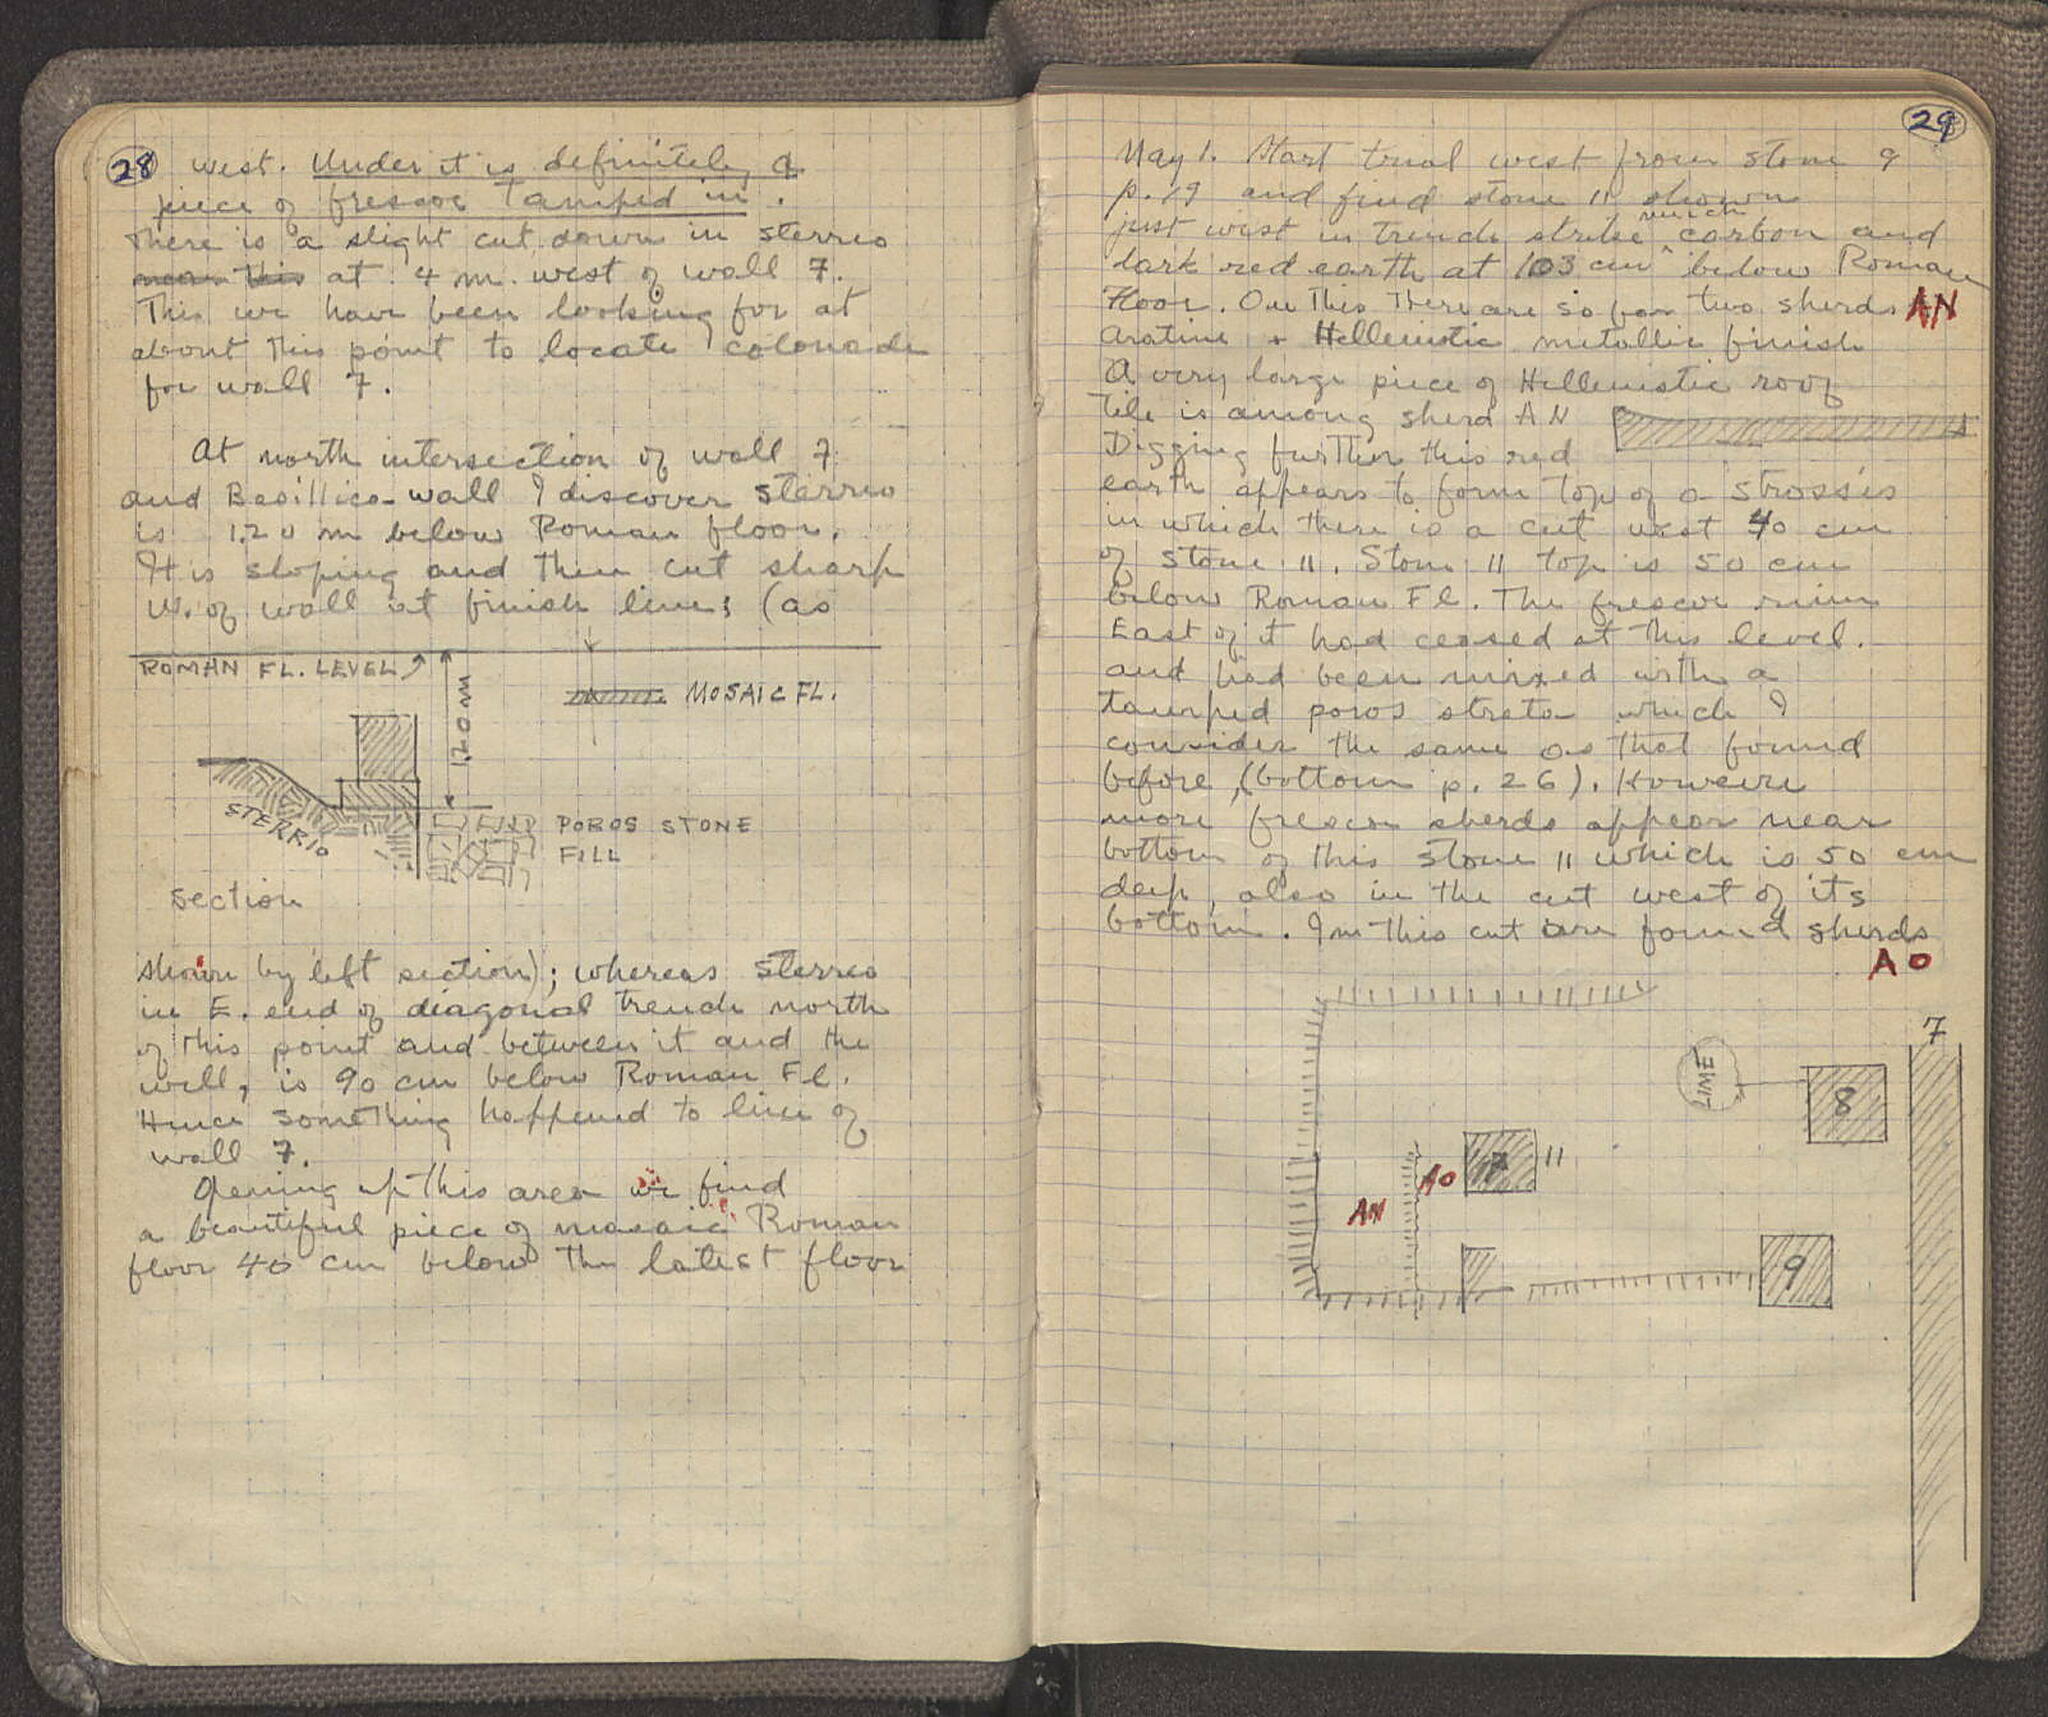 28
west. Under it is definitely a
piece of frescoe Tamped in.
There is a slight cut down in sterreo
near this at 4 m. west of wall 7.
This we have been looking for at
about this point to locate colonade
for wall 7.
At north intersection of wall 7
and Basillica wall I discover sterreo
is 1.20 m below Roman floor.
It is sloping and then cut sharp
W. of wall at finish line; (as
ROMAN FL. LEVEL
1.20 M
MOSAIC FL.
STERRIO
POROS STONE
FILL
Section
shown by left section); whereas sterreo
in E. end of diagonal trench north
of this point and between it and the
well, is 90 cm below Roman Fl.
Hence something happened to line of
wall 7.
Opening up this area we find
a beautiful piece of mosaic Roman
floor 40 cm below the latest floor
29
May 1. Start trial west from stone 9
p. 19 and find stone 11 shown
just west in trench strike much carbon and
dark red earth at 103 cm below Roman
Floor. On This There are so far two sherds AN
Aratine + Hellenistic metallic finish
A very large piece of Hellenistic roof
tile is among sherd AN
Digging further this red
earth appears to form top of a strosis
in which there is a cut west 40 cm
of stone 11. Stone 11 top is 50 cm
below Roman Fl. The frescoe ruin
East of it had ceased at this level.
and had been mixed with a
tamped poros strata which I
consider the same as that found
before, (bottom p. 26). However
more frescoe sherds appear near
bottom of this stone 11 which is 50 cm
deep, also in the cut west of its
bottom. In this cut are found sherds
AO
7
LIME
8
11
AO
AN
9